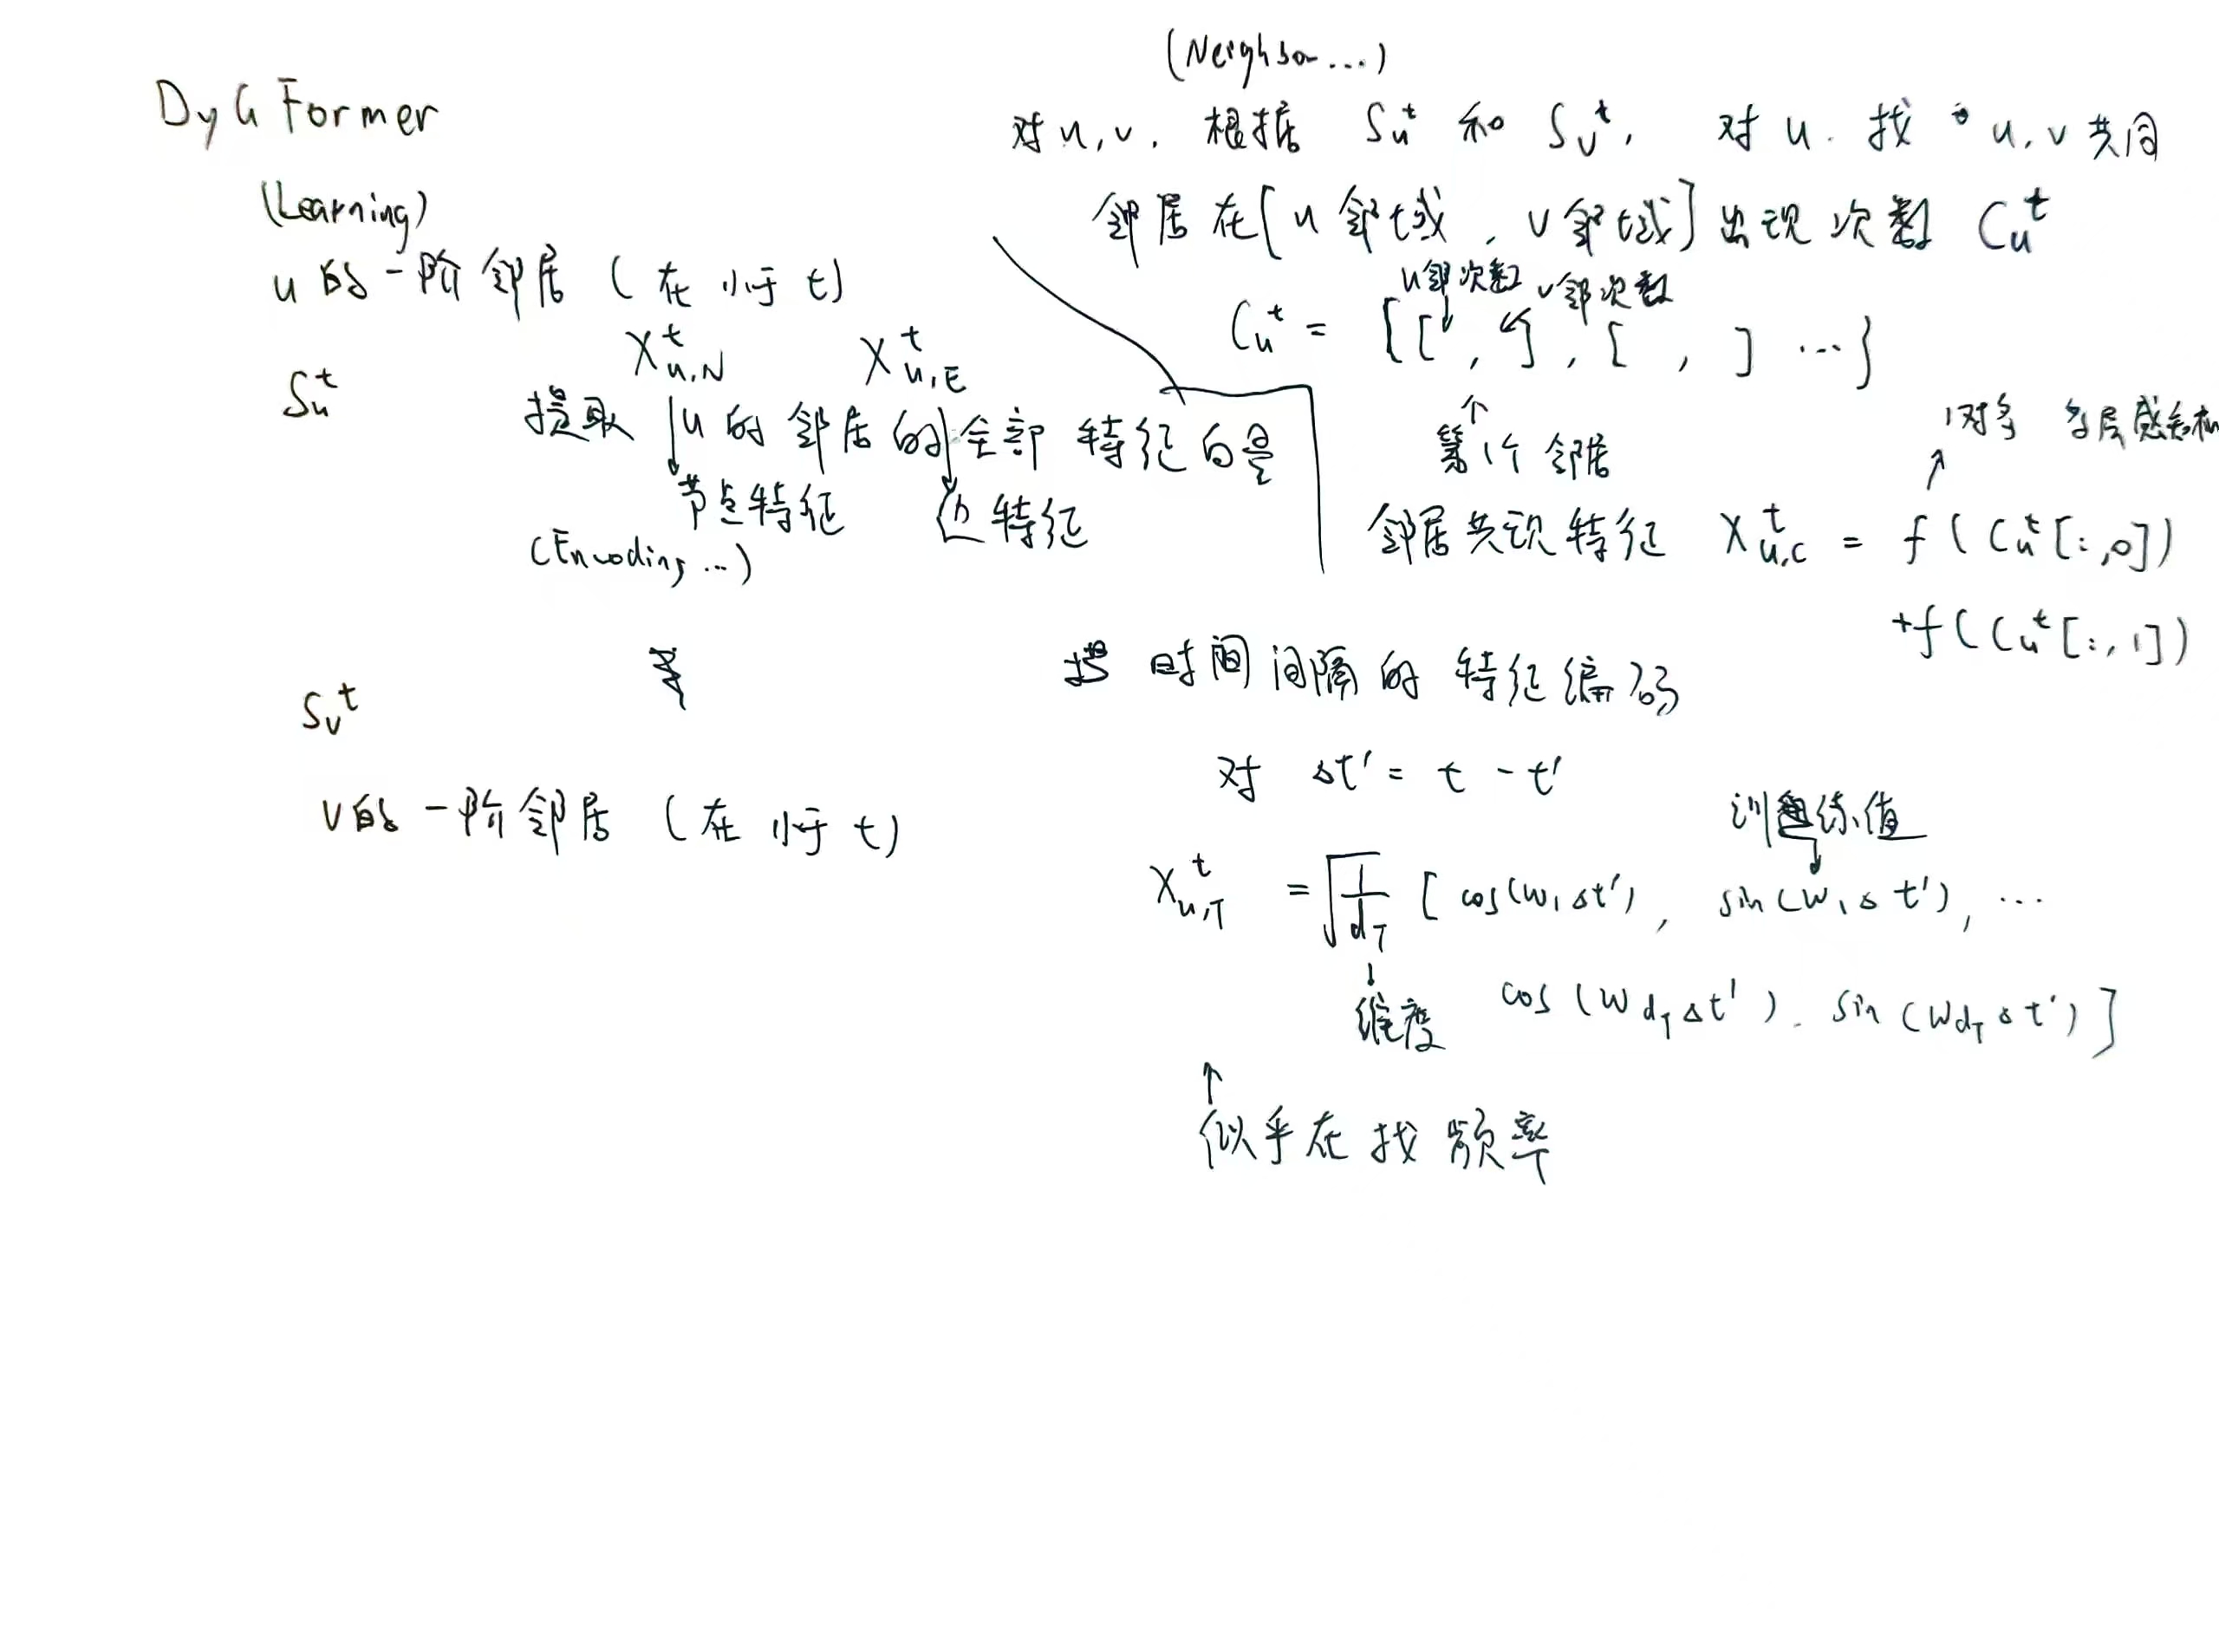 DyGFormer
(Learning)
u的一阶邻居 (在小于t)
S_u^t
X_{u,N}^t X_{u,E}^t
提取 u的邻居的全部特征向量
节点特征 边特征
(Encoding ...)
S_v^t
v的一阶邻居 (在小于t)
(Neighbor ...)
对u,v. 根据 S_u^t 和 S_v^t, 对u. 找 u,v共同
邻居在[u邻域, v邻域]出现次数 C_u^t
u邻次数 v邻次数
C_u^t = {[ , ], [ , ] ...}
第1个邻居
1对多 多层感知机
邻居共现特征 X_{u,C}^t = f(C_u^t[:,0])
+f(C_u^t[:,1])
时间间隔的特征编码
对 Δt' = t - t'
训练值
X_{u,T}^t = √(1/d_T) [cos(w_1Δt'), sin(w_1Δt'), ...
维度
cos(w_{d_T}Δt'). sin(w_{d_T}Δt')]
似乎在找频率